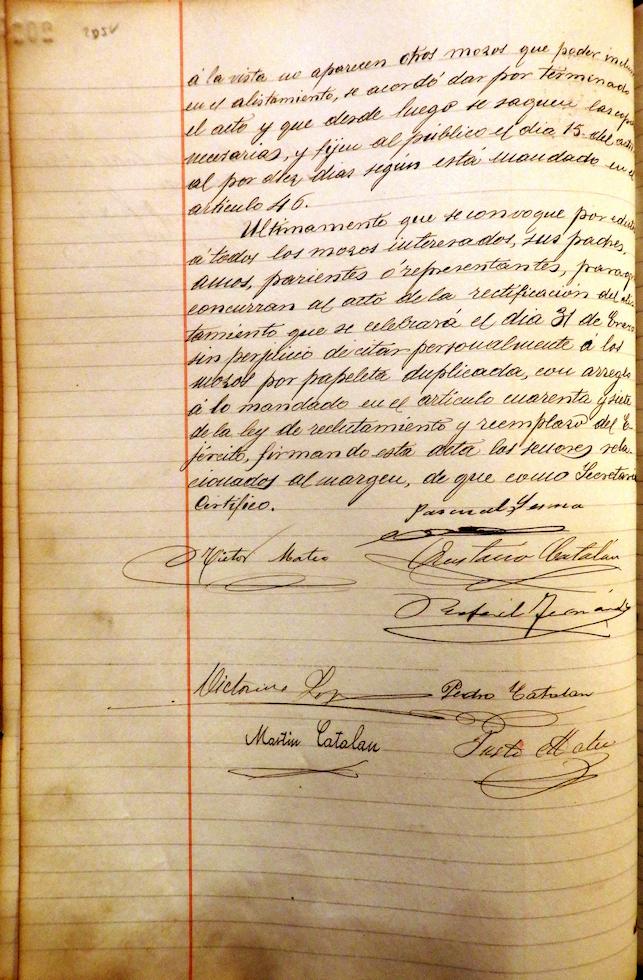 á la vista no aparecen otros mozos que poder inclu
en el alistamiento, se acordó dar por terminado
el acto y que desde luego se saquen las copi
necesarias, y fijen al público el dia 15 del
al por diez dias según está mandado en el
artículo 46.
Ultimamente que se convoque por
á todos los mozos interesados, sus padres,
amos, parientes ó representantes, para que
concurran al acto de la rectificación del alis
tamiento que se celebrará el dia 31 de Enero
sin perjuicio de citar personalmente á los
mozos por papeleta duplicada, con arreglo
á lo mandado en el artículo cuarenta y siete
de la ley de reclutamiento y reemplazo del E-
jército, firmando esta acta los señores rela-
cionados al margen, de que como Secretario
Certifico.
Pascual
Victor Mateo
Catalán
Rafael Fernánd
Victorino
Pedro Catalan
Martin Catalan
Justo Mateo